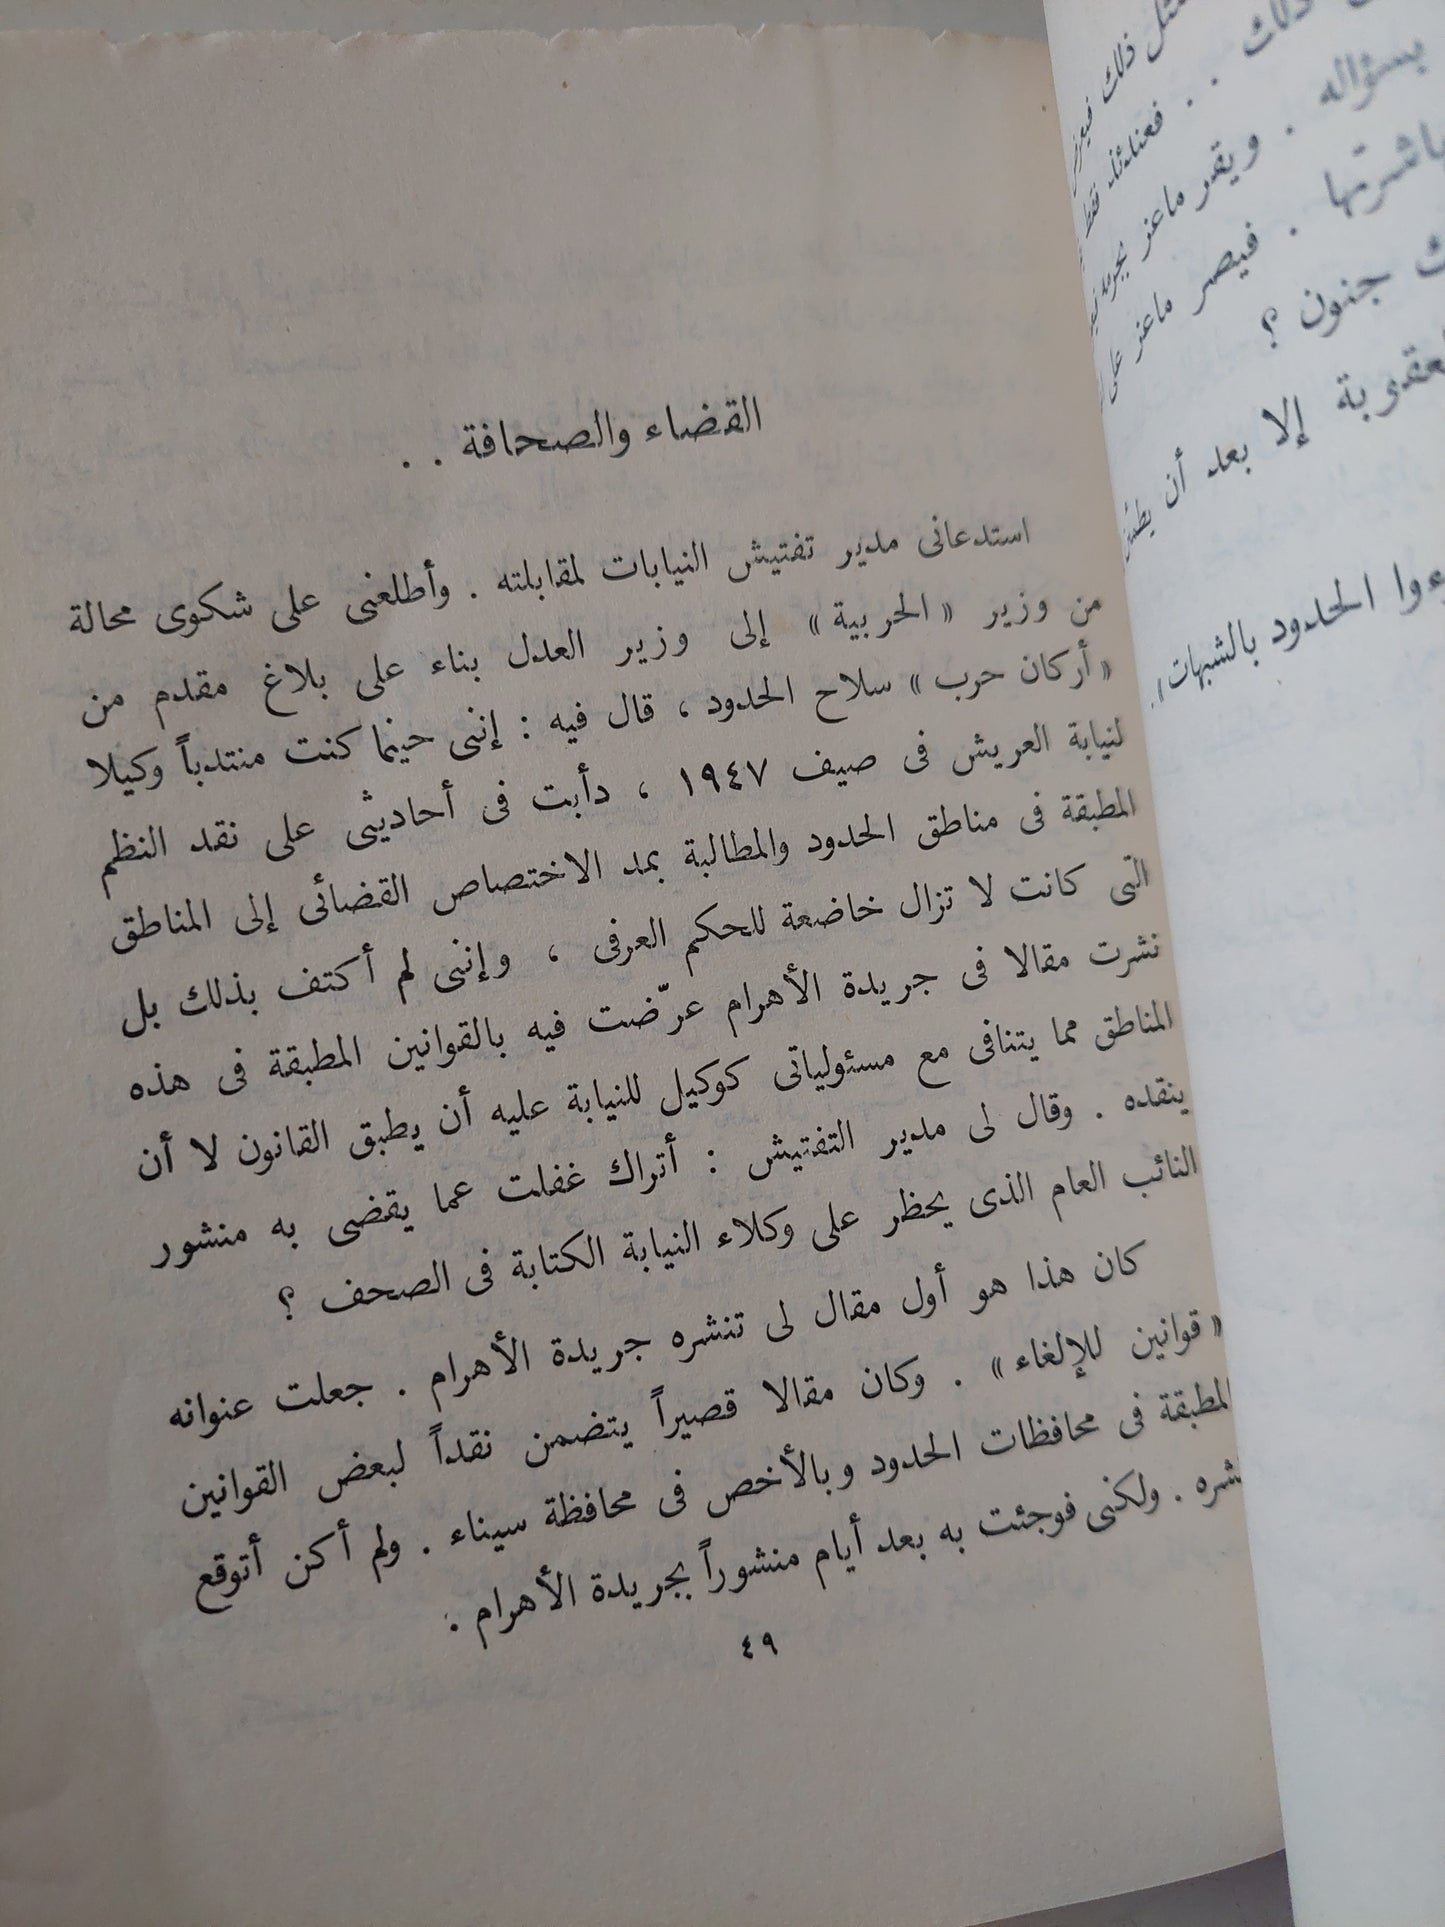 القضاء والصحافة . .
استدعانى مدير تفتيش النيابات لمقابلته . وأطلعنى على شكوى محالة
من وزير « الحربية » إلى وزير العدل بناء على بلاغ مقدم من
« أركان حرب » سلاح الحدود ، قال فيه : إننى حينما كنت منتدباً وكيلا
لنيابة العريش فى صيف ١٩٤٧ ، دأبت فى أحاديثى على نقد النظم
المطبقة فى مناطق الحدود والمطالبة بمد الاختصاص القضائى إلى المناطق
التى كانت لا تزال خاضعة للحكم العرفى ، وإننى لم أكتف بذلك بل
نشرت مقالا فى جريدة الأهرام عرّضت فيه بالقوانين المطبقة فى هذه
المناطق مما يتنافى مع مسئولياتى كوكيل للنيابة عليه أن يطبق القانون لا أن
ينقده . وقال لى مدير التفتيش : أتراك غفلت عما يقضى به منشور
النائب العام الذى يحظر على وكلاء النيابة الكتابة فى الصحف ؟
كان هذا هو أول مقال لى تنشره جريدة الأهرام . جعلت عنوانه
« قوانين للإلغاء » . وكان مقالا قصيراً يتضمن نقداً لبعض القوانين
المطبقة فى محافظات الحدود وبالأخص فى محافظة سيناء . ولم أكن أتوقع
نشره . ولكنى فوجئت به بعد أيام منشوراً بجريدة الأهرام .
٤٩
ذلك
ذلك . . فعندئذ فقط
بسؤاله . ويقر ماعز
. فيصر ماعز على
جنون ؟
إلا بعد أن
الحدود بالشبهات » .